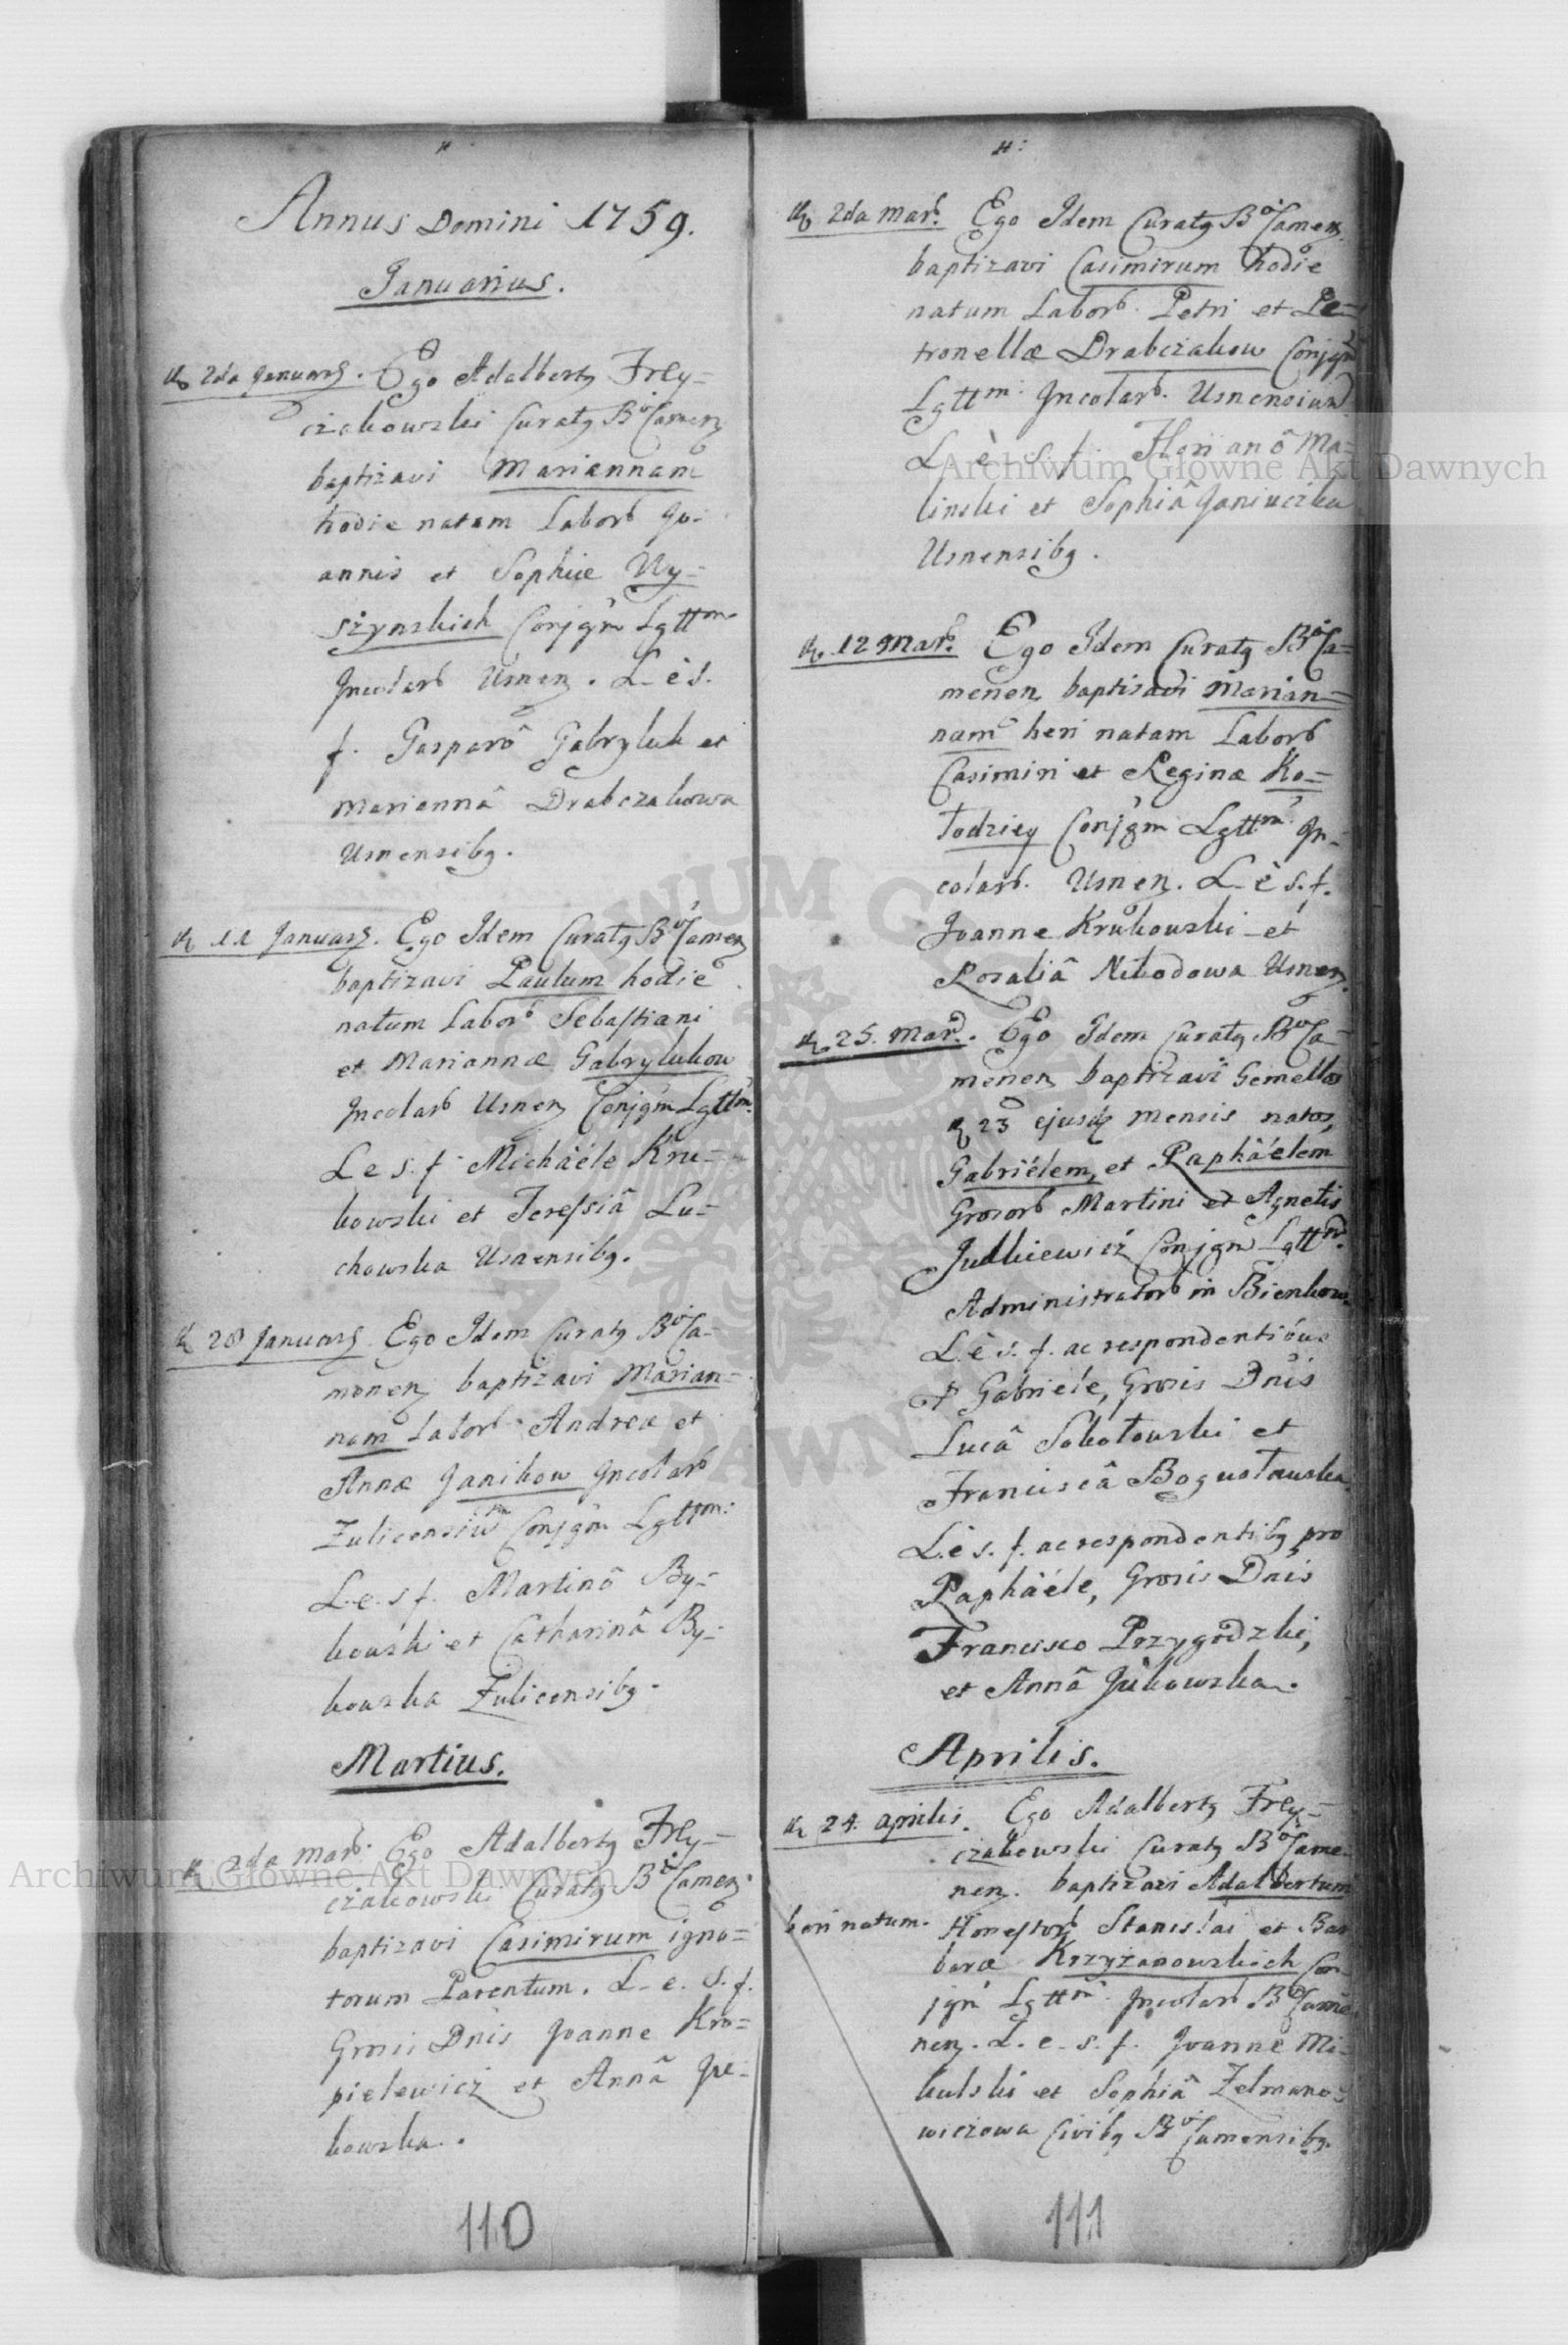 Annus Domini 1759.
Januarius.
2da Januarij. Ego Adalbertq Frey=
czakowski Curatq B Camen
baptizavi Mariannam
hodie natam Labor Jo=
annis et Sophiæ Wy=
szynskich Conjgm Lgttm
Incolar Usnen. L. è s.
f. Gasparô Gabryluk et
Mariannâ Drabczakowa
Usnensibq.
11 Januarij. Ego Idem Curatq B Camen
baptizavi Paulum hodie
natum Labor Sebastiani
et Mariannæ Gabrylukow
Incolar Usnen Conjgm Lgttm.
L e s. f. Michâéle Kru=
kowski et Teressiâ Lu=
chowska Usnensibq.
28 Januarij. Ego Idem Curatq B Ca=
menen baptizavi Marian=
nam Labor Andreæ et
Annæ Janikow Incolar
Zulicensium Conjgm Lgttm:
L. e. s f. Martinô By=
kowski et Catharinâ By=
kowska Zulicensibq.
Martius.
2da Mar. Ego Adalbertq Frey=
czakowski Curatq B Camen
baptizavi Casimirum igno=
torum Parentum. L. e. s. f.
Grosis Dnis Joanne Kro=
pielewicz et Annâ Ju=
kowska.
110
2da Mar. Ego Idem Curatq B Camen
baptizavi Casimirum hodie
natum Labor. Petri et Pe=
tronellæ Drabczakow Conjgm
Lgttm. Incolar. Usnensium
L. è s. f. Florianô Ma=
linski et Sophiâ Janiuczka
Usnensibq.
12 Mar. Ego Idem Curatq B Ca=
menen baptizavi Marian=
nam heri natam Labor
Casimiri et Reginæ Ko=
łodziey Conjgm Lgttm. In=
colar. Usnen. L. è s. f.
Joanne Krukowski et
Rosaliâ Nikodowa Usnen.
25. Mar. Ego Idem Curatq B Ca=
menen baptizavi Gemellos
23 ejusdq mensis natos,
Gabriélem, et Raphâélem
Grosor Martini et Agnetis
Judkiewicz Conjgm Lgttm.
Administrator in Bienkow.
L. è s. f. ac respondentibus
P Gabriele, Grosis Dnis
Lucâ Sokołowski et
Franciscâ Bogusławska
L. è s. f. ac respondentibq pro
Raphâéle, Grosis Dnis
Francisco Przygodzki,
et Annâ Jukowska.
Aprilis.
24. Aprilis. Ego Adalbertq Frey=
czakowski Curatq B Came=
nen. baptizavi Adalbertum
heri natum. Honestor Stanislai et Bar
baræ Krzyżanowskich Con=
jgm Lgttm. Incolar B Came
nen. L. e. s. f. Joanne Mi=
kulski et Sophiâ Zelmano=
wiczowa Civibq B Camensibq.
111
Archiwum Główne Akt Dawnych
Archiwum Główne Akt Dawnych